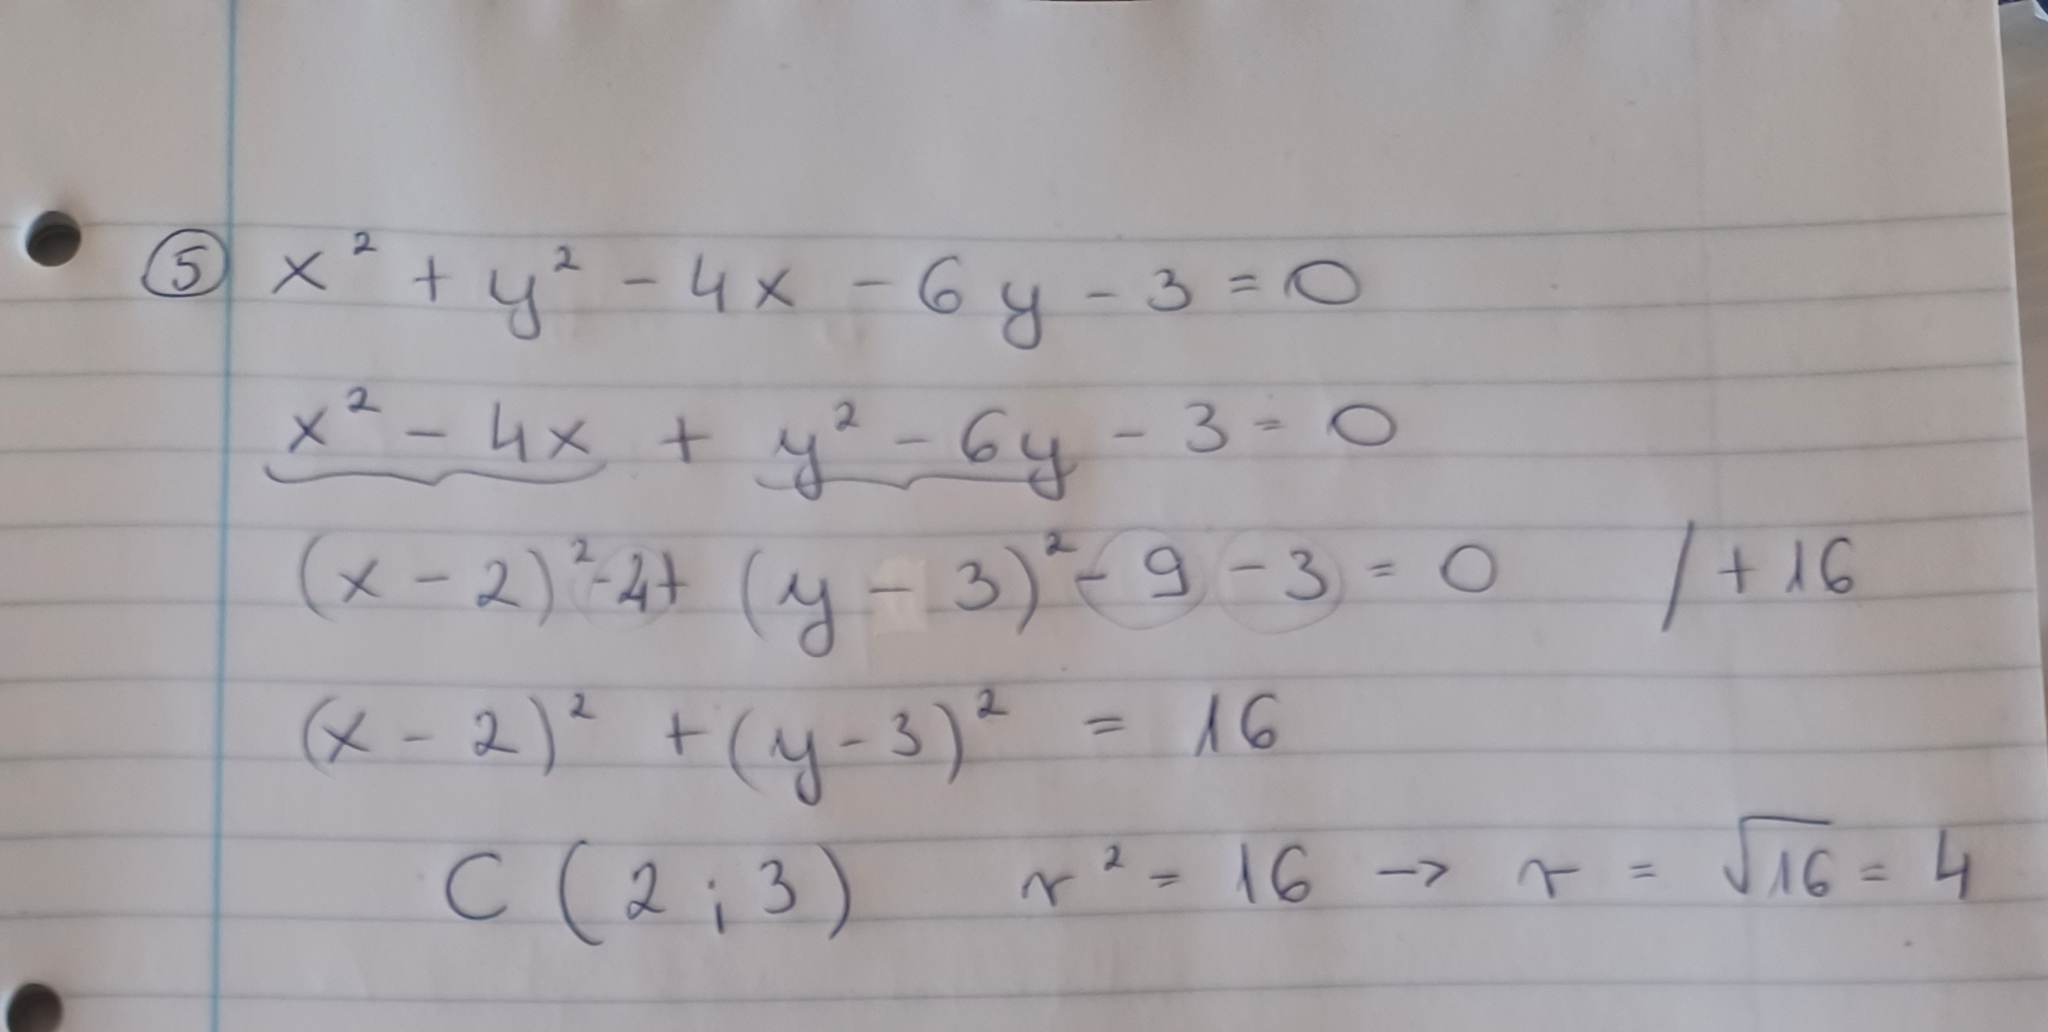 ⑤ x² + y² - 4x - 6y - 3 = 0
x² - 4x + y² - 6y - 3 = 0
(x - 2)² - 4 + (y - 3)² - 9 - 3 = 0 / + 16
(x - 2)² + (y - 3)² = 16
C (2 ; 3) r² = 16 → r = √16 = 4